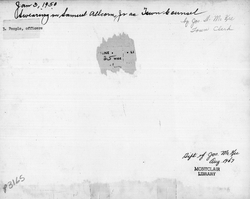 Jan 3, 1950
Swearing in Samuel Allcorn, Jr as Town Counsel
by Jos. S. Mc Kee
Town Clerk
D. People, officers
Gift of Jos. Mc Kee
Aug 1967
MONTCLAIR
LIBRARY
#3165